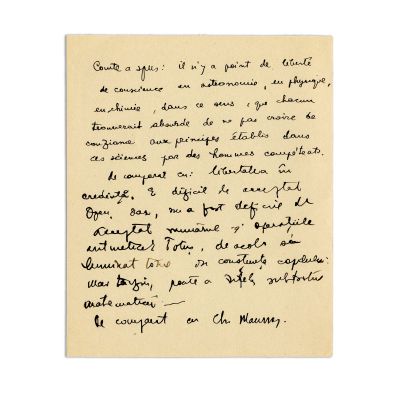 Comte a spus: il n'y a point de liberté
de conscience en astronomie, en physique,
en chimie, dans ce sens, que chacun
trouverait absurde de ne pas croire de
confiance aux principes établis dans
ces sciences par des hommes compétents.
De comparat cu: libertatea în
credință. E dificil de acceptat
Dar, nu a fost dificil de
acceptat numărul și operațiile
aritmetice? Totuși, de acolo s'a
luminat
mai târziu, poate a
matematica —
De comparat cu Ch. Maurras.